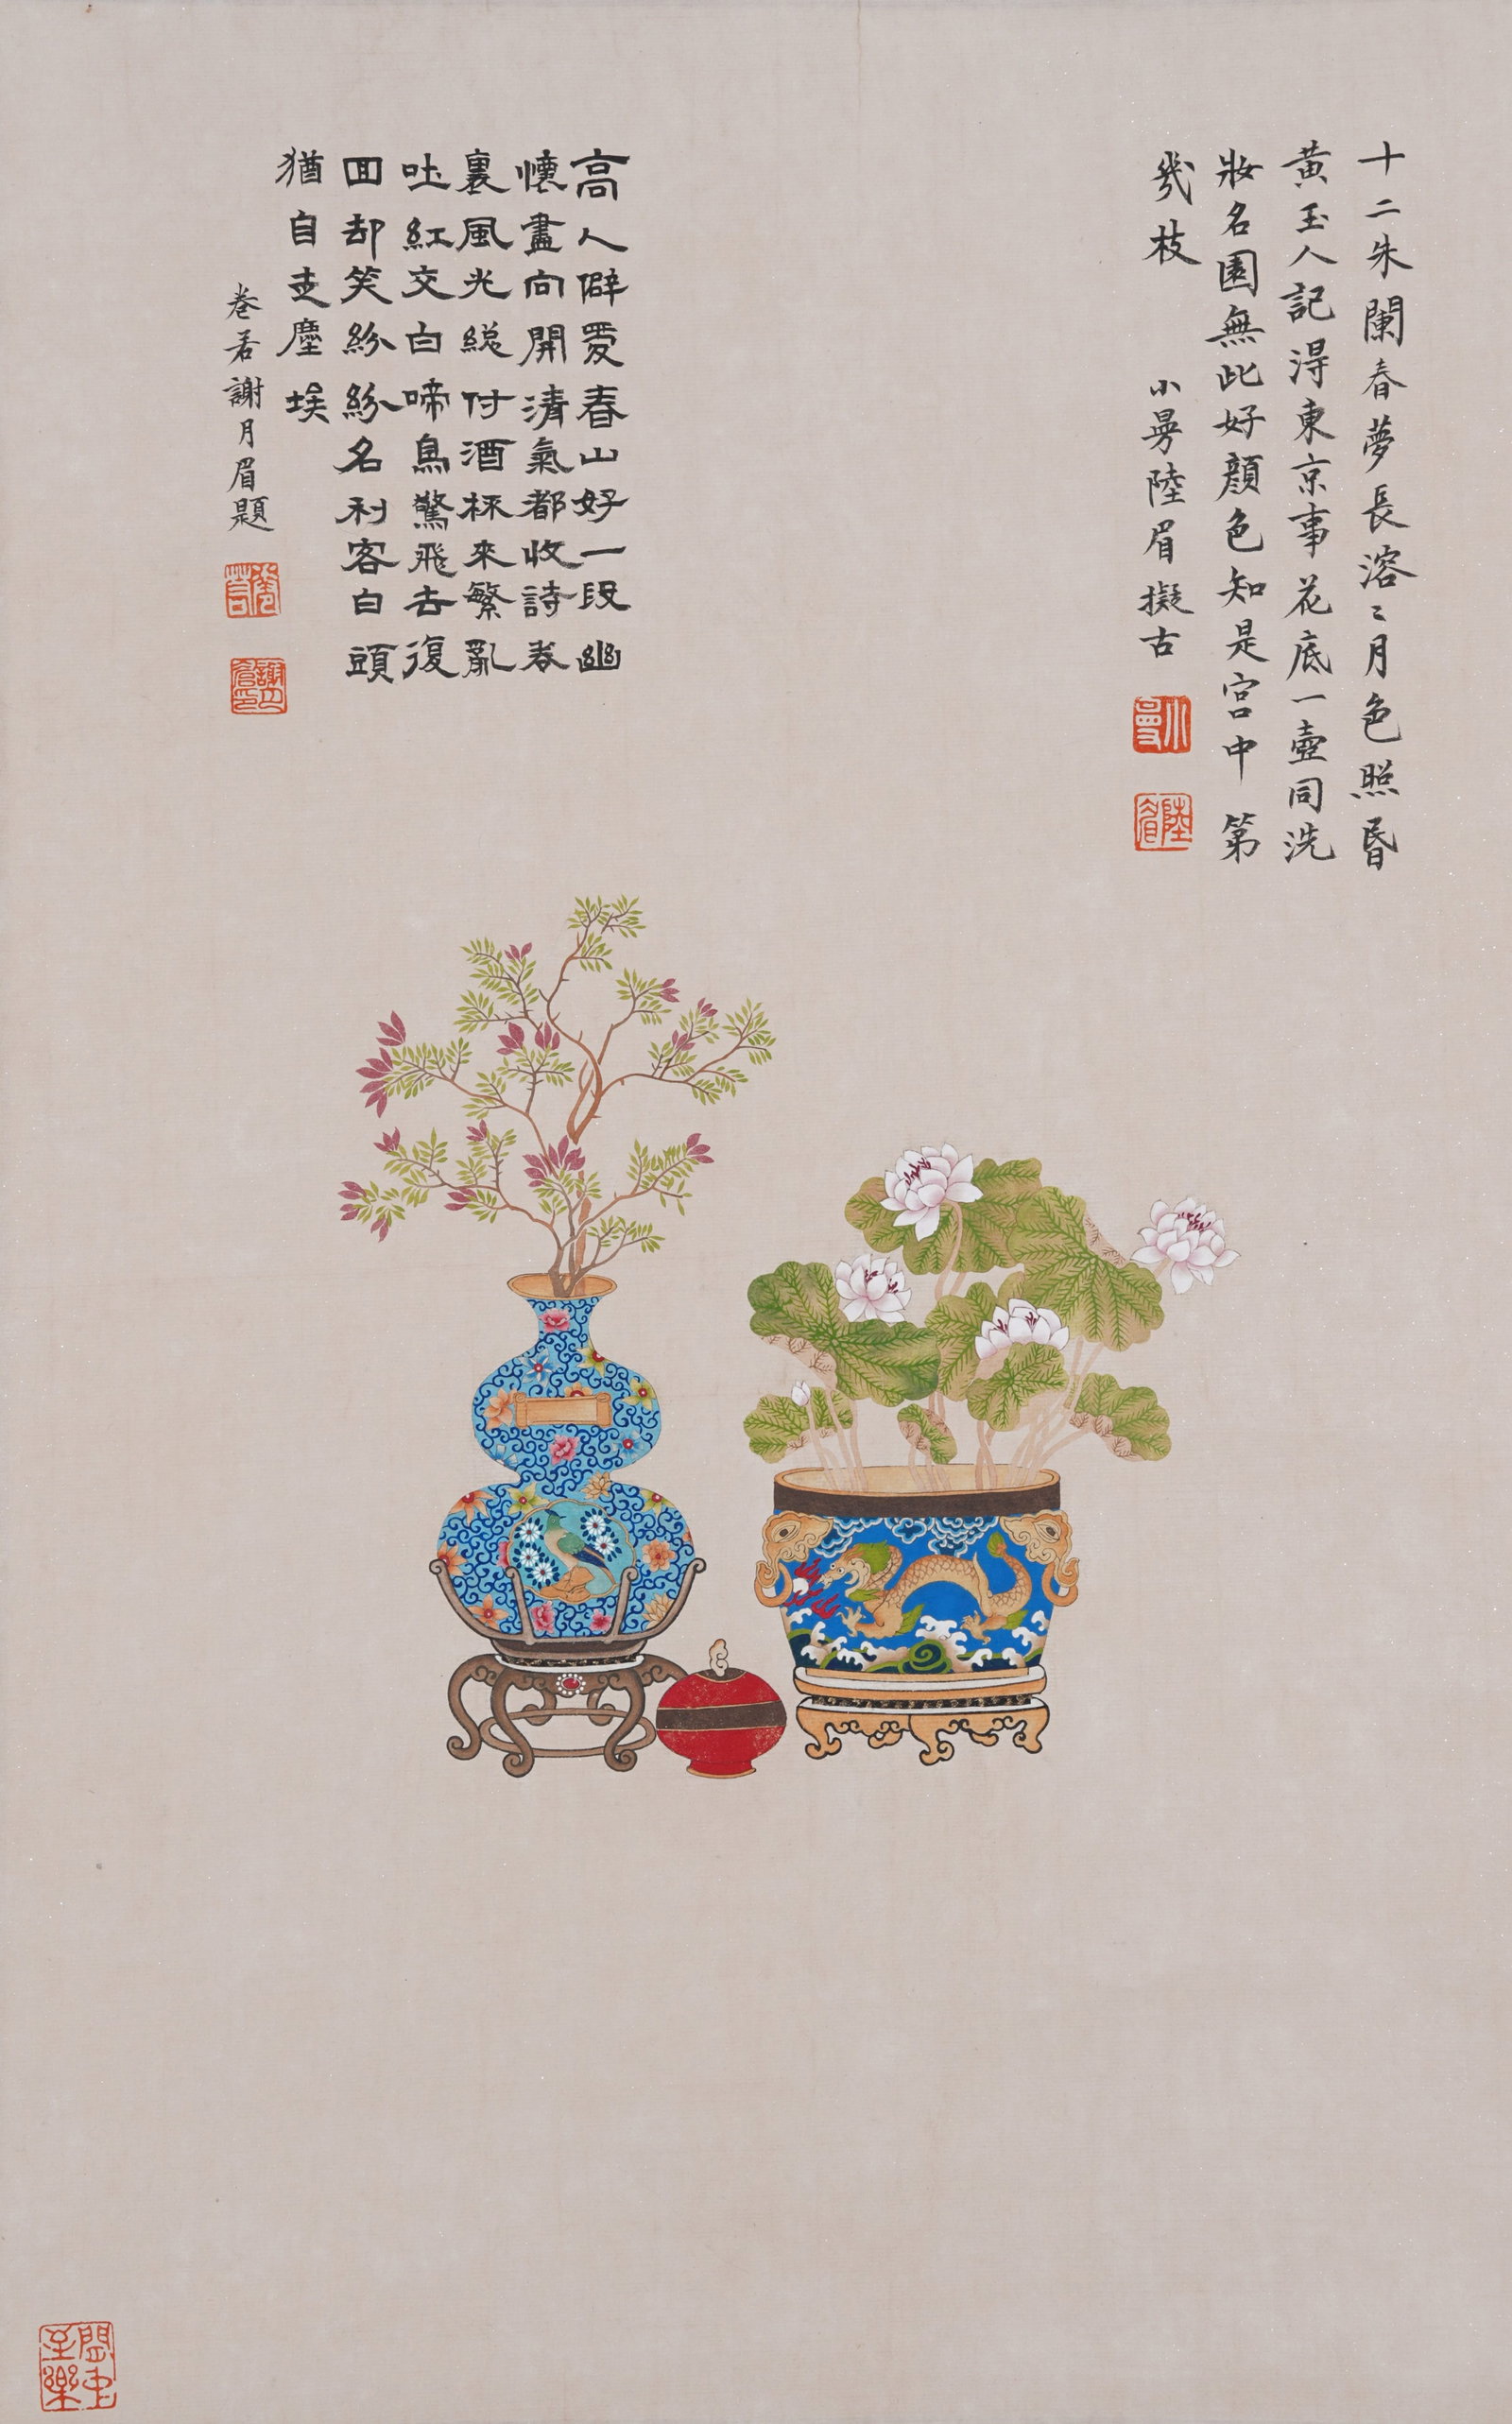 十二朱闌春夢長溶〻月色照昏
黃玉人記得東京事花底一壺同洗
妝名園無此好顏色知是宮中第
幾枝
小曼陸眉擬古
小曼
陸眉
高人僻愛春山好一段幽
懷盡向開清氣都收詩卷
裏風光總付酒杯來繁亂
吐紅交白啼鳥驚飛去復
回却笑紛紛名利客白頭
猶自走塵埃
卷若謝月眉題
卷若
至樂